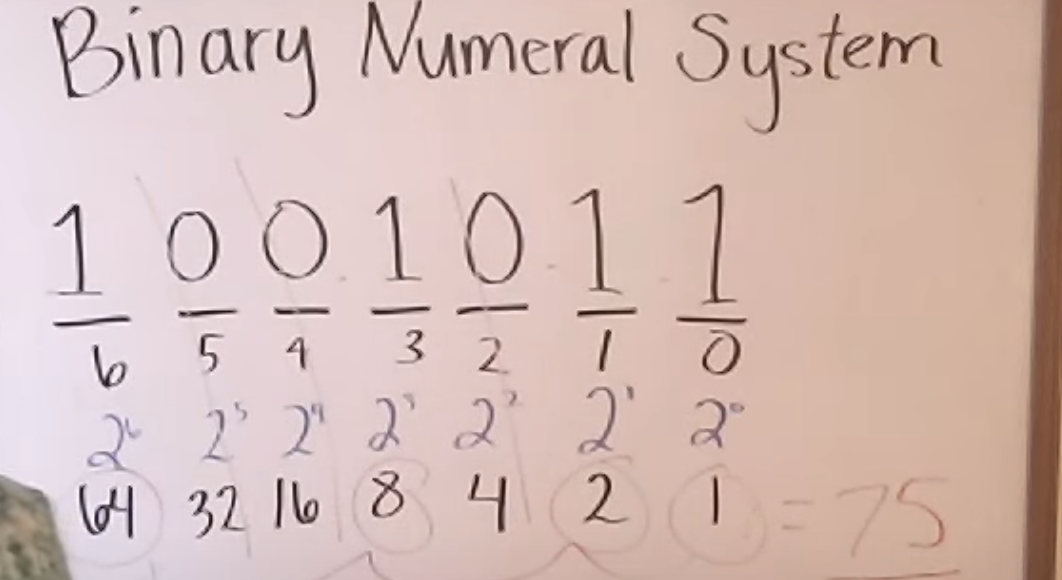 Binary Numeral System
1 0 0 1 0 1 1
6 5 4 3 2 1 0
2⁶ 2⁵ 2⁴ 2³ 2² 2¹ 2⁰
64 32 16 8 4 2 1 = 75